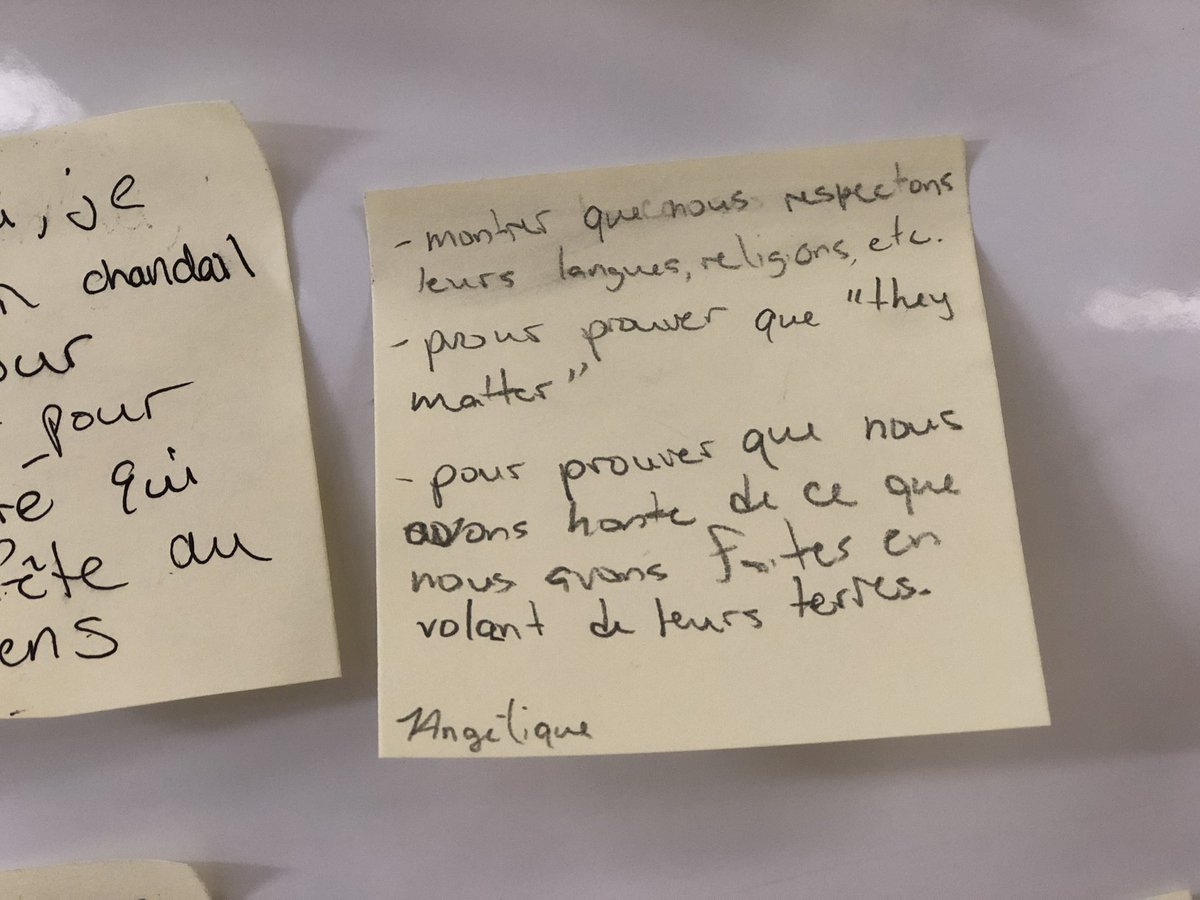 , je
chandail
pour
qui
fête au
- montrer que nous respectons
leurs langues, religions, etc.
- pour prouver que "they
matter"
- pour prouver que nous
avons honte de ce que
nous avons faites en
volant de leurs terres.
Angélique